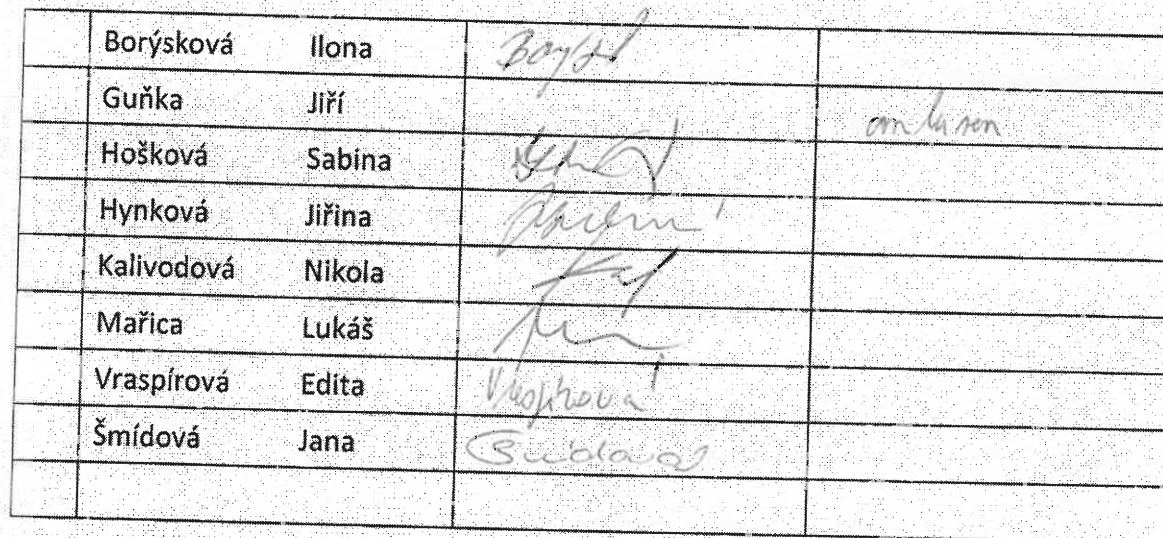 Borýsková Ilona
Guňka Jiří omluven
Hošková Sabina
Hynková Jiřina
Kalivodová Nikola
Mařica Lukáš
Vraspírová Edita Vraspírová
Šmídová Jana Šmídová